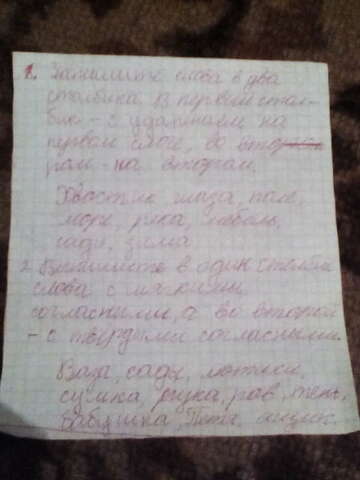 1. Запишите слова в два
столбика. В первый стол-
бик - с ударением на
первом слоге, во вто
ром - на втором.
Хвостик, глаза, поле,
море, река, мебель,
сады, зима
2. Выпишите в один столбик
слова с мягкими
согласными, а во второй
- с твёрдыми согласными.
Ваза, сады, лютики,
сушка, рука, лень,
бабушка, Петя,